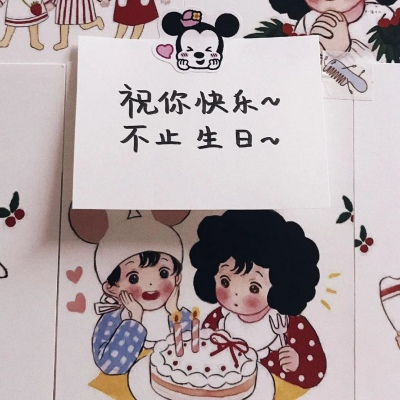 祝你快乐~
不止生日~